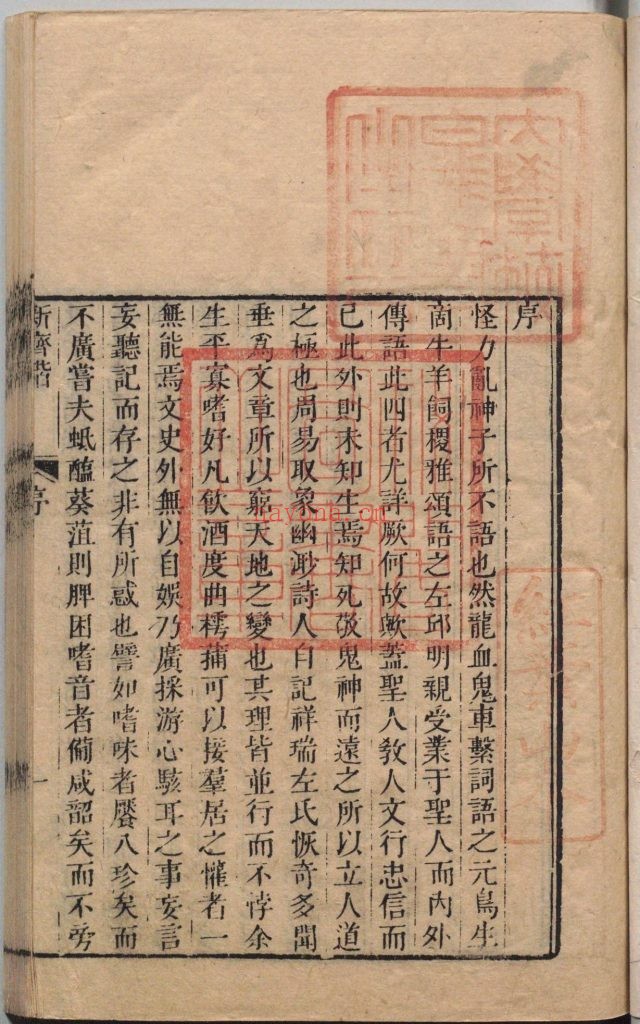 序
怪力亂神子所不語也然龍血鬼車繫詞語之元鳥生
商牛羊飼稷雅頌語之左邱明親受業于聖人而內外
傳語此四者尤詳厥何故歟蓋聖人教人文行忠信而
已此外則未知生焉知死敬鬼神而遠之所以立人道
之極也周易取象幽渺詩人自記祥瑞左氏恢奇多聞
垂爲文章所以窮天地之變也其理皆並行而不悖余
生平寡嗜好凡飲酒度曲樗蒱可以接羣居之懽者一
無能焉文史外無以自娛乃廣採游心駭耳之事妄言
妄聽記而存之非有所惑也譬如嗜味者饜八珍矣而
不廣嘗夫蚳醢葵菹則脾困嗜音者備咸韶矣而不旁
新齊諧
序
一